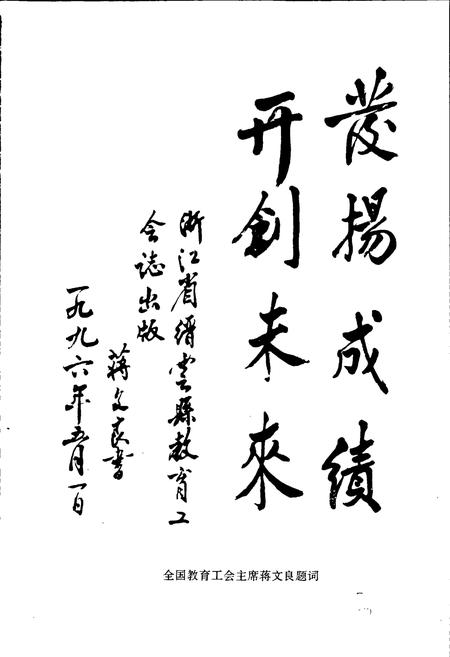 發揚成績
开創未來
浙江省缙云縣教育工
会誌出版
蒋文良書
一九九六年五月一日
全国教育工会主席蒋文良题词